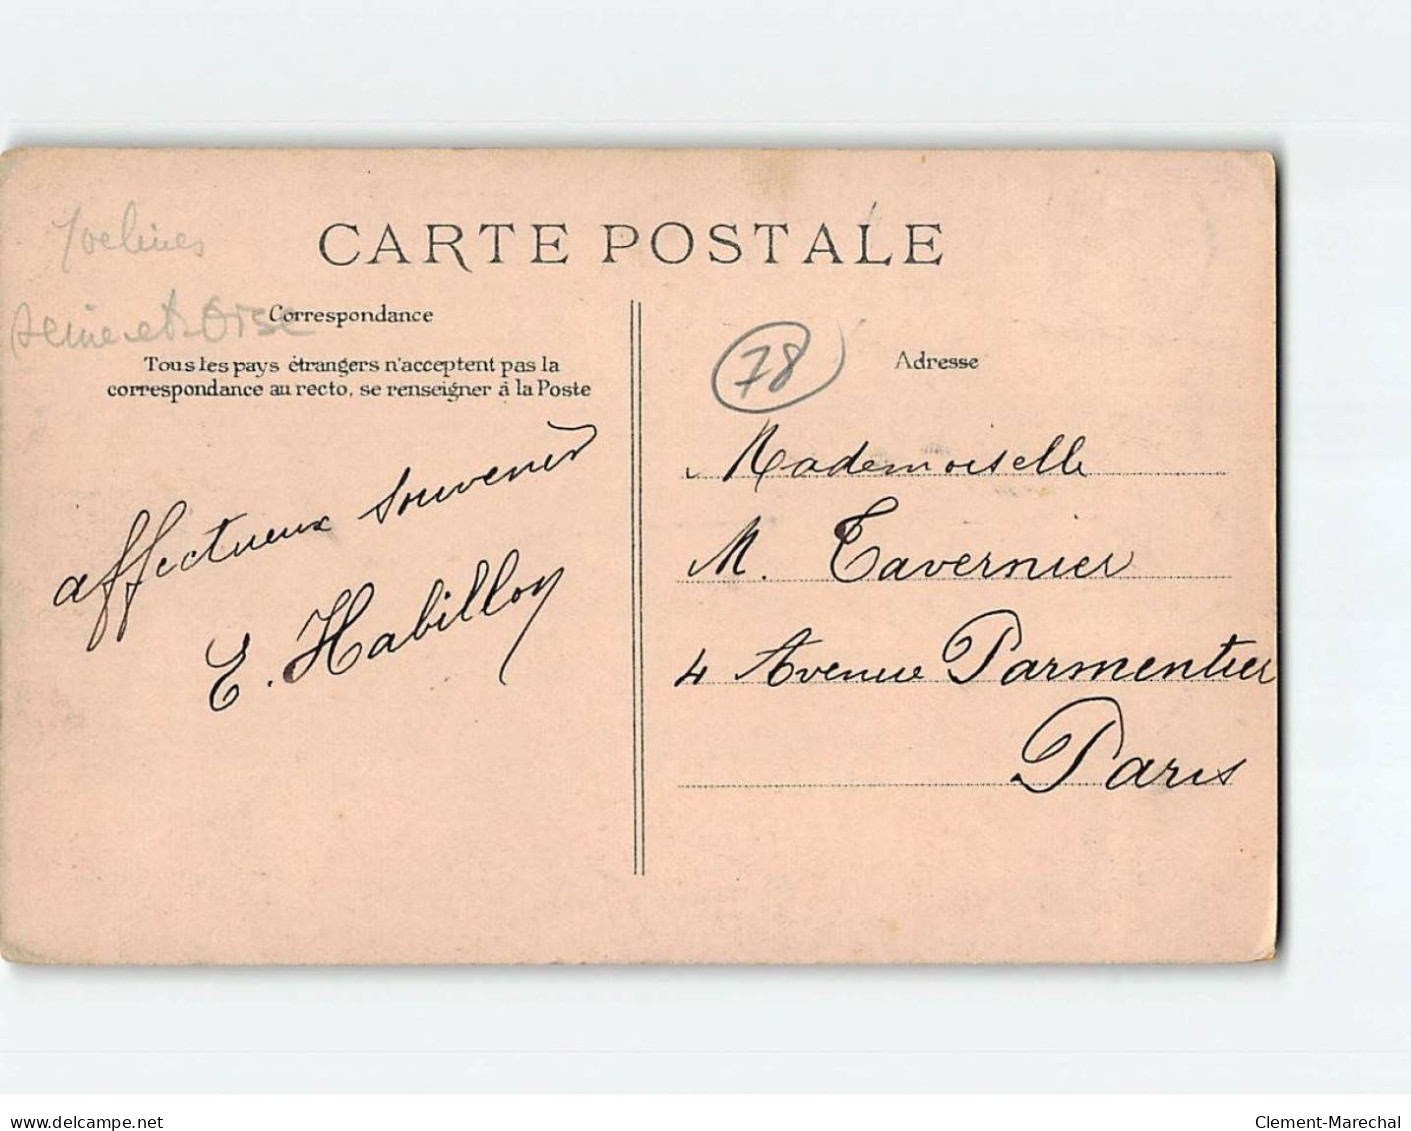 Yvelines
CARTE POSTALE
Seine-et-Oise
Correspondance
Tous les pays étrangers n'acceptent pas la
correspondance au recto, se renseigner à la Poste
affectueux souvenir
E. Habillon
78
Adresse
Mademoiselle
M. Tavernier
4 Avenue Parmentier
Paris
www.delcampe.net
Clement-Marechal